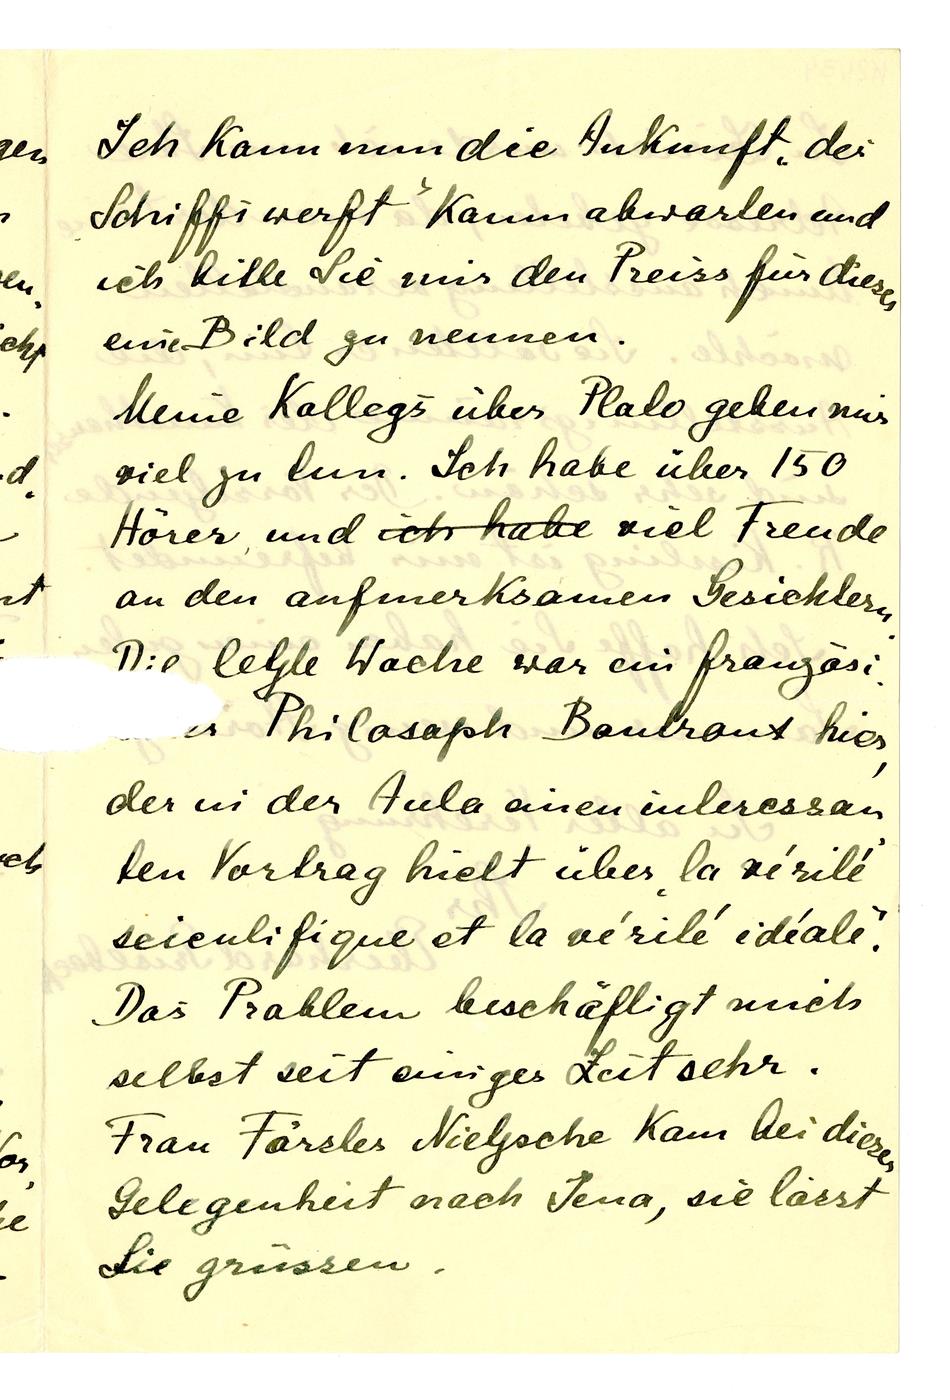 Ich kann nun die Ankunft „der
Schiffswerft“ kaum abwarten und
ich bitte Sie mir den Preiss für dieses
eine Bild zu nennen.
Meine Kollegs über Plato geben mir
viel zu tun. Ich habe über 150
Hörer, und ich habe viel Freude
an den aufmerksamen Gesichtern.
Die letzte Woche war ein französi-
er Philosoph Boutroux hier,
der in der Aula einen interessan
ten Vortrag hielt über „la vérité
scientifique et la vérité idéale“.
Das Problem beschäftigt mich
selbst seit einiger Zeit sehr.
Frau Förster Nietzsche kam bei dieser
Gelegenheit nach Jena, sie lässt
Sie grüssen.